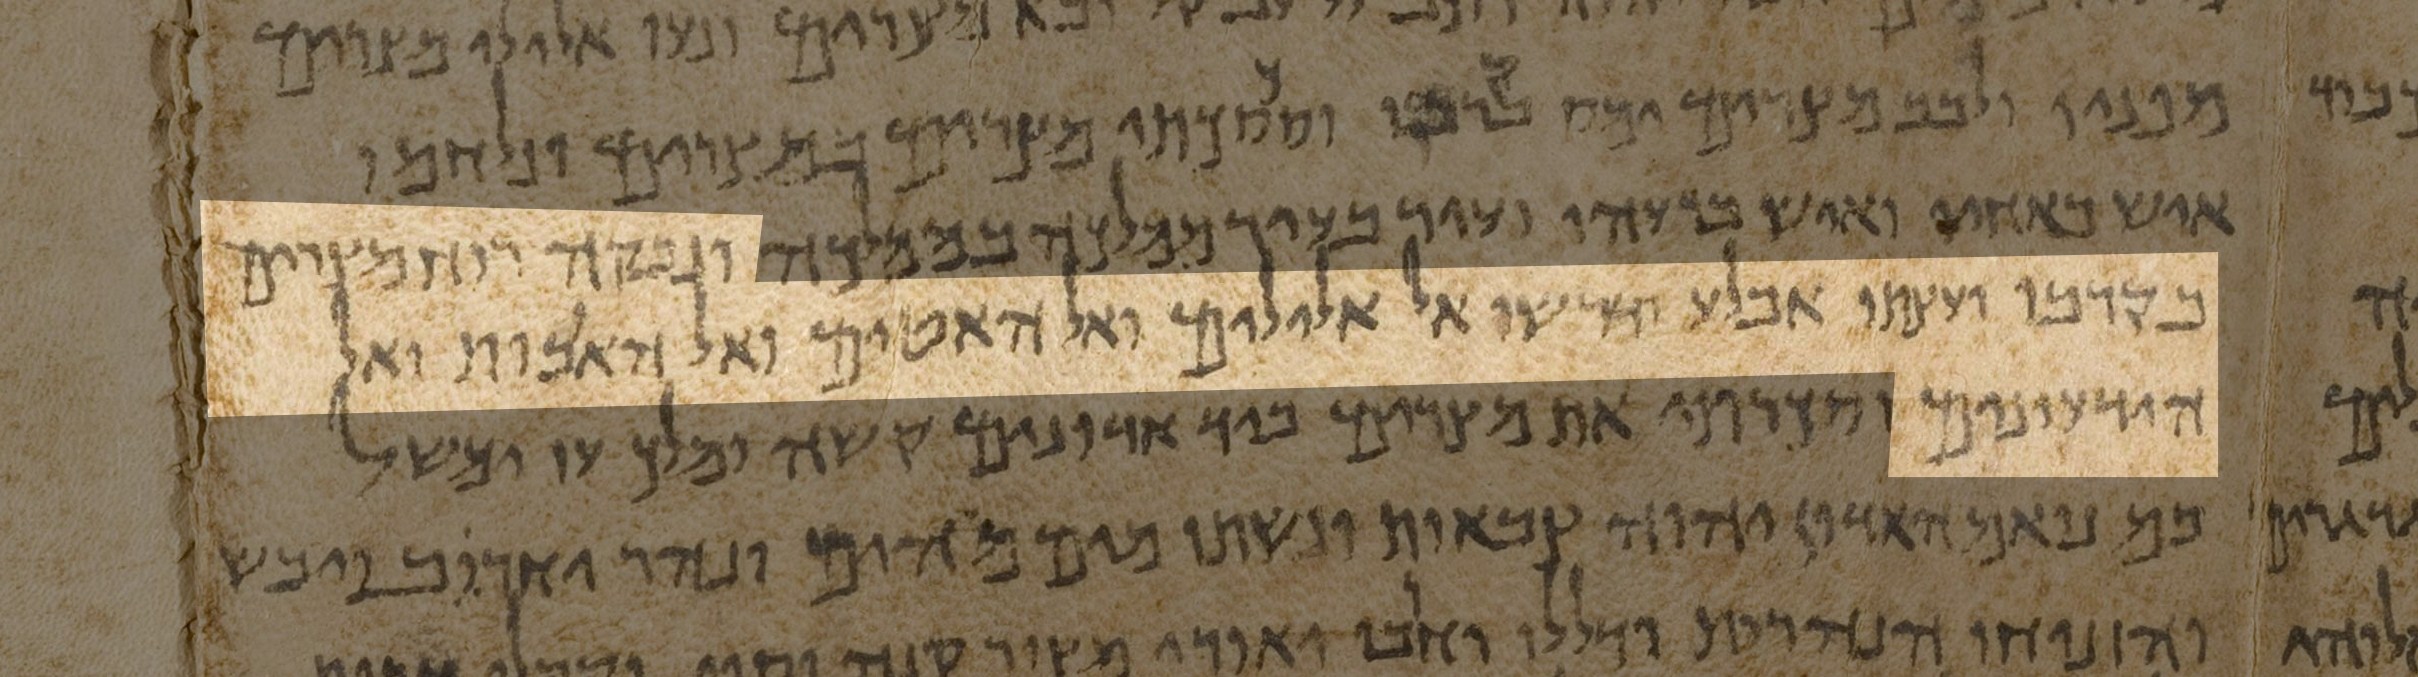 מצרים ונעו אלילי מצרים
מפניו ולבב מצרים ימס מצרים במצרים ונלחמו
איש באחיו ואיש ברעהו ועיר בעיר ממלכה בממלכה ונבקה רוח מצרים
בקרבו ועצתו אבלע ודרשו אל אלילים ואל האטים ואל האבות ואל
הידעונים וסכרתי את מצרים ביד אדונים קשה ומלך עז ימשל
בם נואם האדון יהוה צבאות ונשתו מים מהים ונהר יחרב ויבש
והזניחו הנהרות ודללו וחרבו יאורי מצור קנה וסוף